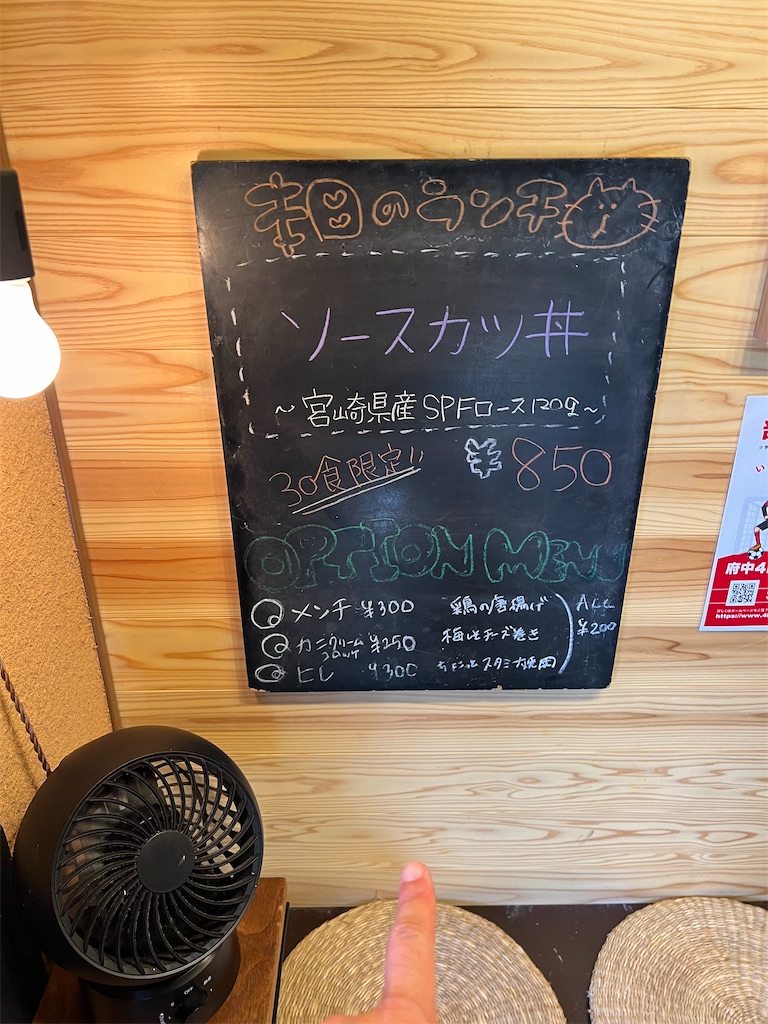 本日のランチ
ソースカツ丼
～宮崎県産SPFロース120g～
30食限定!! ¥850
OPTION MENU
メンチ ¥300
カニクリームコロッケ ¥250
ヒレ ¥300
鶏の唐揚げ
梅しそチーズ巻き
ちょこっとスタミナ焼肉
ALL
¥200
府中4
https://www.4